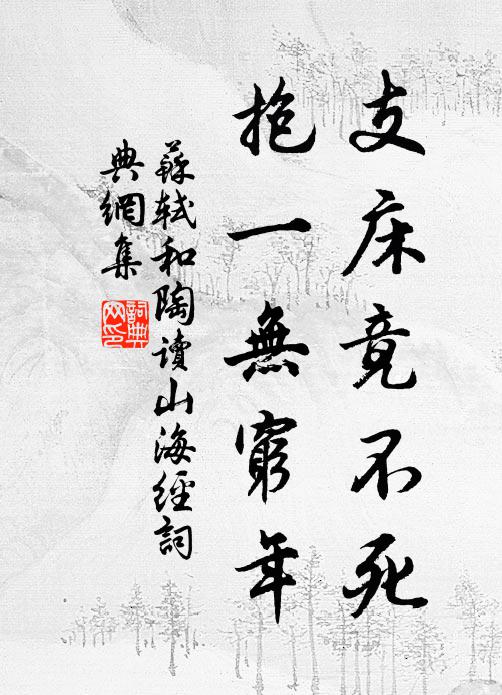 支床竟不死
抱一無窮年
蘇軾和陶讀山海經詞
典網集
詞典
网印